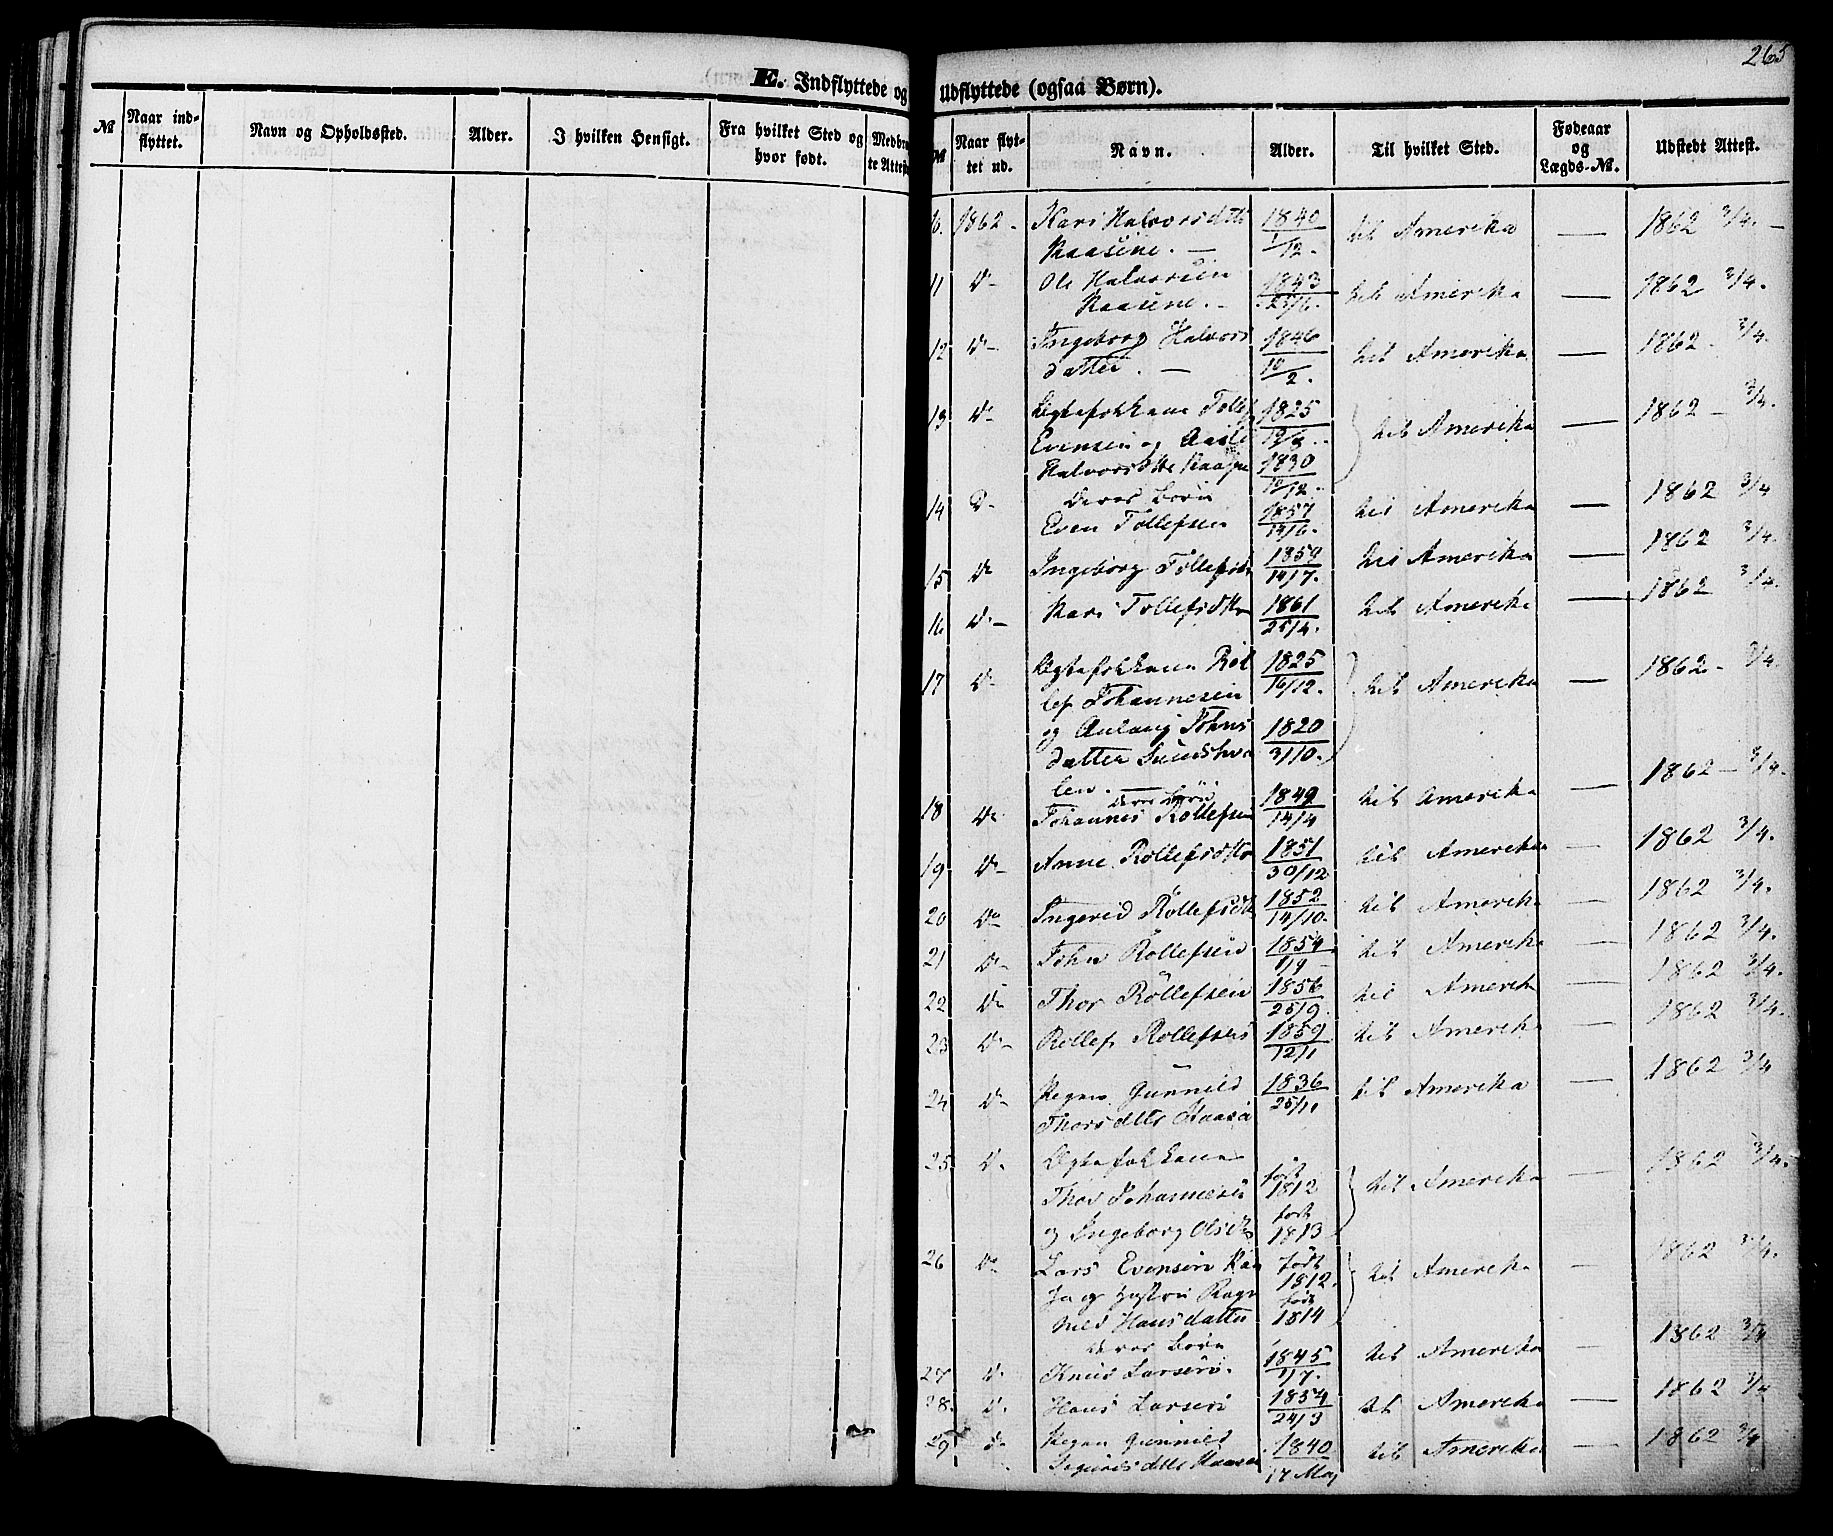 265
E. Indflyttede og Udflyttede (ogsaa Børn).
№ Naar ind-flyttet. Navn og Opholdssted. Alder. I hvilken Hensigt. Fra hvilket Sted og hvor født. Medbra te Attest
№ Naar flyt-tet ud. Navn. Alder. Til hvilket Sted. Fødeaar og Lægds-№. Udstedt Attest.
10. 1862 - Kari Halvorsdtt 1840 til Amerika — 1862 3/4 -
Raasine. — 1/12.
11 Do Ole Halvorsen 1843 til Amerika — 1862 3/4.
Raasine. -
12 Do Ingeborg Halvors 1846 til Amerika — 1862 - 3/4.
datter. — 10/2.
13 Do Ægtefolkene Tollef 1825 til Amerika — 1862 - 3/4.
Evensen og Aaste
Halvorsdtte 1830
10/12.
14 Do deres Børn til Amerika — 1862 3/4
Even Tollefsen 1857
14/6.
15 Do Ingeborg Tollefsdtr 1859 til Amerika — 1862 3/4.
14/7.
16 Do Kari Tollefsdtr 1861 til Amerika — 1862 3/4.
25/4.
17 Do Ægtefolkene Rol 1825 til Amerika — 1862 - 3/4.
lef Johannesen 16/12.
og Aulaug Johns 1820
datter 31/10.
len. — deres Børn
18 Do Johannes Rollefsen 1849 til Amerika — 1862 - 3/4.
14/4
19 Do Anne Rollefsdtr 1851 til Amerika — 1862 3/4.
30/12
20 Do Ingerid Rollefsdtr 1852 til Amerika — 1862 3/4.
14/10.
21 Do John Rollefsen 1854 til Amerika — 1862 3/4.
1/9 -
22 Do Thor Rollefsen 1856 til Amerika — 1862 3/4.
25/9.
23 Do Rollef Rollefsen 1859 til Amerika — 1862 3/4.
12/1
24 Do Pigen Gunnild 1836 til Amerika — 1862 3/4
Thorsdtte 25/11
25. Do Ægtefolkene født til Amerika — 1862 3/4.
Thor Johannesen 1812
og Ingeborg Olsdtr født 1813
26 Do Lars Evensen Raa født til Amerika — 1862 3/4.
1812.
og Hustru Ragn født
hild Hansdatter 1814
deres Børn
27 Do Knud Larsen. 1845 til Amerika — 1862 3/4
1/7.
28. Do Hans Larsen 1854 til Amerika — 1862 3/4
24/3
29 Do Pigen Gunnild 1840 til Amerika — 1862 3/4
17 Maj